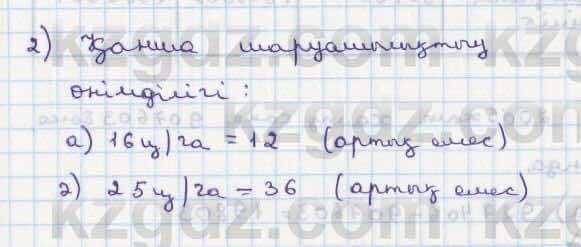 2) Қанша шаруашылықтың
өнімділігі :
а) 16ц/га = 12 (артық емес)
ә) 25ц/га = 36 (артық емес)